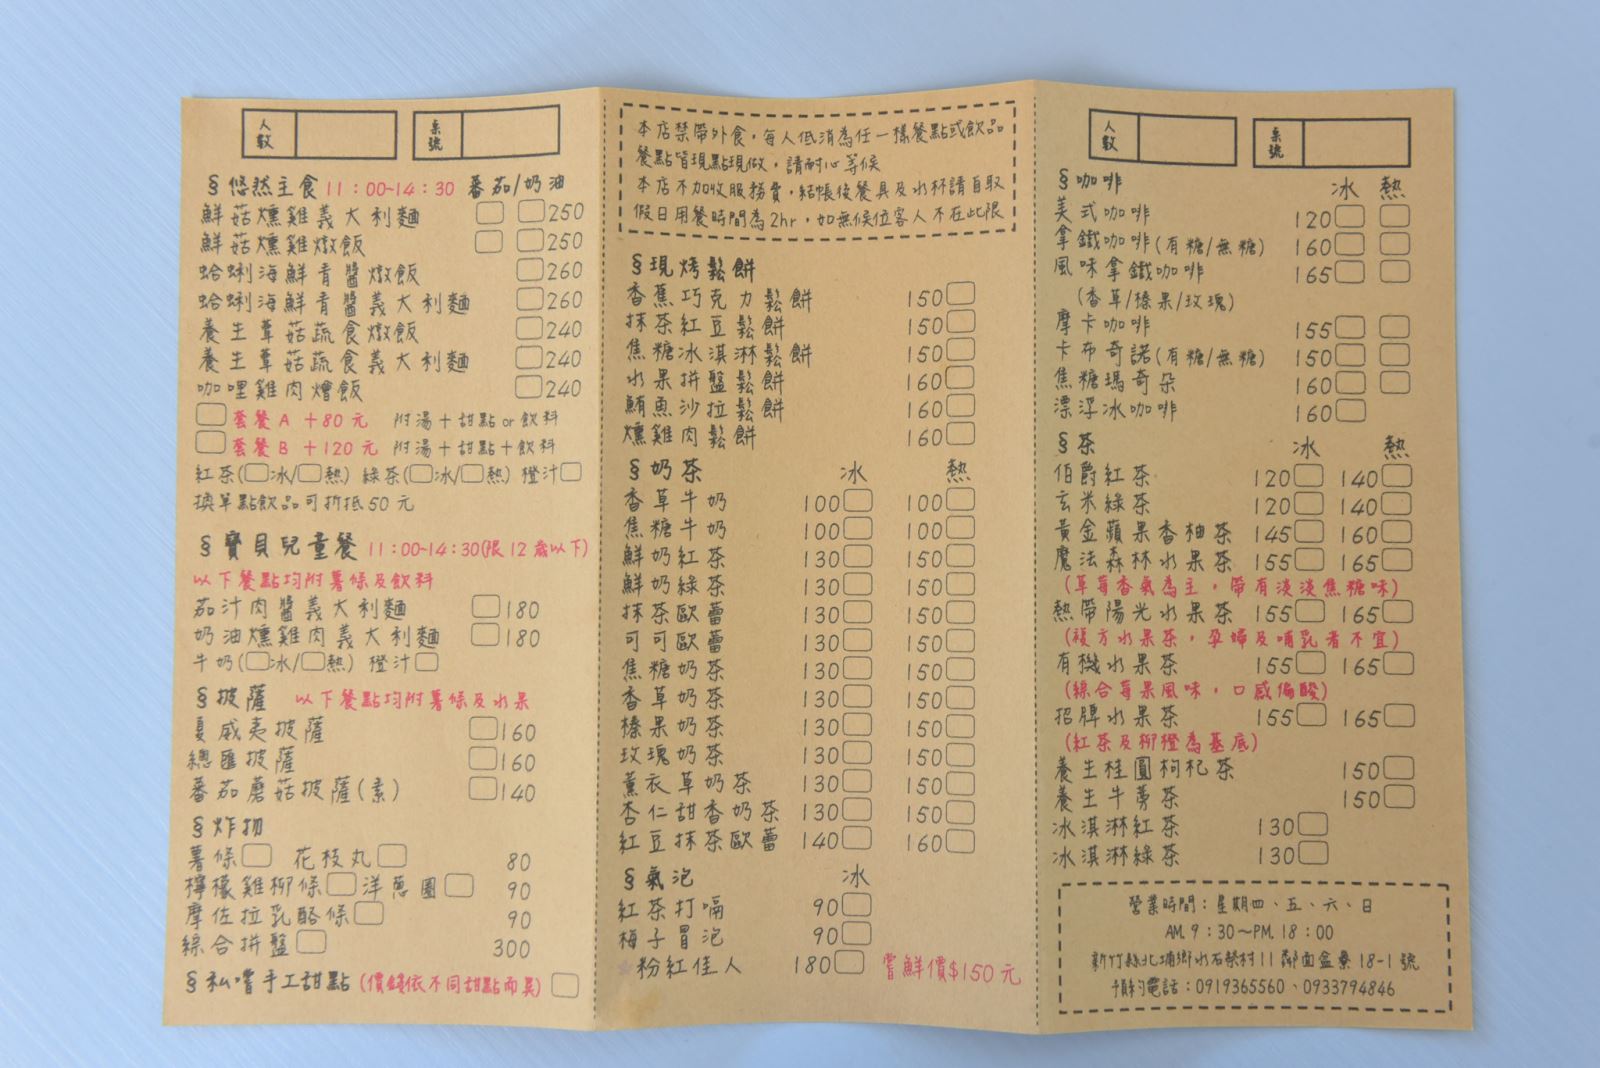 人數
桌號
§悠然主食 11：00~14：30 番茄/奶油
鮮菇燻雞義大利麵 250
鮮菇燻雞燉飯 250
蛤蜊海鮮青醬燉飯 260
蛤蜊海鮮青醬義大利麵 260
養生蕈菇蔬食燉飯 240
養生蕈菇蔬食義大利麵 240
咖哩雞肉燴飯 240
套餐A ＋80元 附湯＋甜點or飲料
套餐B ＋120元 附湯＋甜點＋飲料
紅茶(冰/熱) 綠茶(冰/熱) 橙汁
換單點飲品可折抵50元
§寶貝兒童餐 11：00-14：30(限12歲以下)
以下餐點均附薯條及飲料
茄汁肉醬義大利麵 180
奶油燻雞肉義大利麵 180
牛奶(冰/熱) 橙汁
§披薩 以下餐點均附薯條及水果
夏威夷披薩 160
總匯披薩 160
番茄蘑菇披薩(素) 140
§炸物
薯條 花枝丸 80
檸檬雞柳條 洋蔥圈 90
摩佐拉乳酪條 90
綜合拼盤 300
§私嚐手工甜點(價錢依不同甜點而異)
本店禁帶外食，每人低消為任一樣餐點或飲品
餐點皆現點現做，請耐心等候
本店不加收服務費，結帳後餐具及水杯請自取
假日用餐時間為2hr，如無候位客人不在此限
§現烤鬆餅
香蕉巧克力鬆餅 150
抹茶紅豆鬆餅 150
焦糖冰淇淋鬆餅 150
水果拼盤鬆餅 160
鮪魚沙拉鬆餅 160
燻雞肉鬆餅 160
§奶茶 冰 熱
香草牛奶 100 100
焦糖牛奶 100 100
鮮奶紅茶 130 150
鮮奶綠茶 130 150
抹茶歐蕾 130 150
可可歐蕾 130 150
焦糖奶茶 130 150
香草奶茶 130 150
榛果奶茶 130 150
玫瑰奶茶 130 150
薰衣草奶茶 130 150
杏仁甜香奶茶 130 150
紅豆抹茶歐蕾 140 160
§氣泡 冰
紅茶打嗝 90
梅子冒泡 90
★粉紅佳人 180 嘗鮮價$150元
人數
桌號
§咖啡 冰 熱
美式咖啡 120
拿鐵咖啡(有糖/無糖) 160
風味拿鐵咖啡 165
(香草/榛果/玫瑰)
摩卡咖啡 155
卡布奇諾(有糖/無糖) 150
焦糖瑪奇朵 160
漂浮冰咖啡 160
§茶 冰 熱
伯爵紅茶 120 140
玄米綠茶 120 140
黃金蘋果香柚茶 145 160
魔法森林水果茶 155 165
(草莓香氣為主，帶有淡淡焦糖味)
熱帶陽光水果茶 155 165
(複方水果茶，孕婦及哺乳者不宜)
有機水果茶 155 165
(綜合莓果風味，口感偏酸)
招牌水果茶 155 165
(紅茶及柳橙為基底)
養生桂圓枸杞茶 150
養生牛蒡茶 150
冰淇淋紅茶 130
冰淇淋綠茶 130
營業時間：星期四、五、六、日
AM. 9：30～PM. 18：00
新竹縣北埔鄉水石祭村11鄰面盆寮18-1號
預約電話：0919365560、0933794846